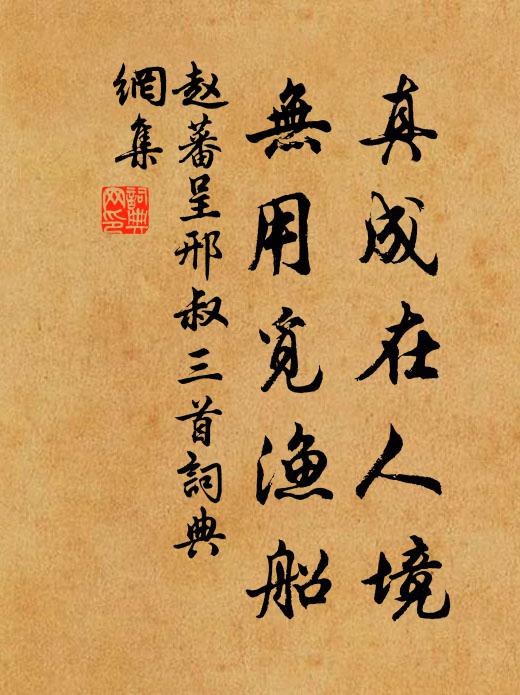 真成在人境
無用覓漁船
赵蕃呈邢叔三首詞典
網集
詞典
网印